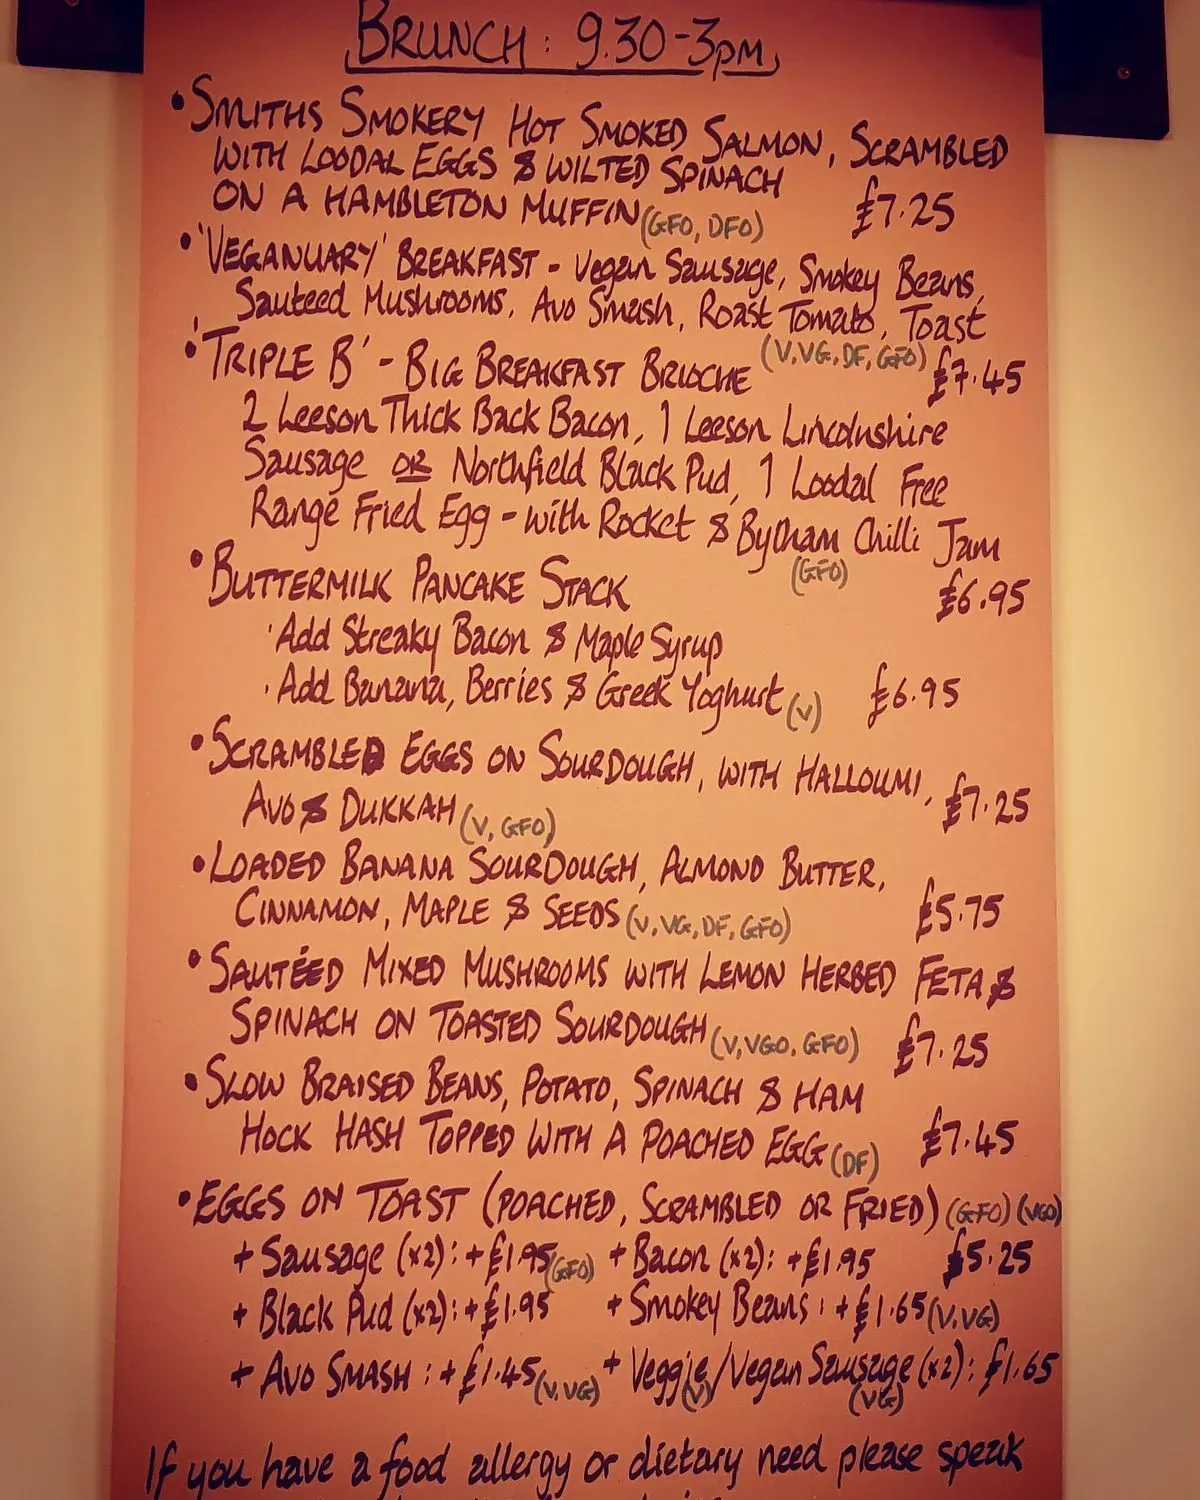 BRUNCH : 9.30-3PM
• SMITHS SMOKERY HOT SMOKED SALMON, SCRAMBLED
WITH LOODAL EGGS & WILTED SPINACH
ON A HAMBLETON MUFFIN (GFO, DFO) £7.25
• 'VEGANUARY' BREAKFAST - Vegan Sausage, Smokey Beans,
Sauteed Mushrooms, Avo Smash, Roast Tomato, Toast
(V, VG, DF, GFO) £7.45
• 'TRIPLE B' - BIG BREAKFAST BRIOCHE
2 Leeson Thick Back Bacon, 1 Leeson Lincolnshire
Sausage OR Northfield Black Pud, 1 Loodal Free
Range Fried Egg - with Rocket & Bytham Chilli Jam
(GFO) £6.95
• BUTTERMILK PANCAKE STACK
· Add Streaky Bacon & Maple Syrup
· Add Banana, Berries & Greek Yoghurt (V) £6.95
• SCRAMBLED EGGS ON SOURDOUGH, WITH HALLOUMI,
AVO & DUKKAH (V, GFO) £7.25
• LOADED BANANA SOURDOUGH, ALMOND BUTTER,
CINNAMON, MAPLE & SEEDS (V, VG, DF, GFO) £5.75
• SAUTÉED MIXED MUSHROOMS WITH LEMON HERBED FETA &
SPINACH ON TOASTED SOURDOUGH (V, VGO, GFO) £7.25
• SLOW BRAISED BEANS, POTATO, SPINACH & HAM
HOCK HASH TOPPED WITH A POACHED EGG (DF) £7.45
• EGGS ON TOAST (POACHED, SCRAMBLED OR FRIED) (GFO) (VGO)
+ Sausage (x2): +£1.95 (GFO) + Bacon (x2): +£1.95 £5.25
+ Black Pud (x2): +£1.95 + Smokey Beans : +£1.65 (V, VG)
+ AVO SMASH : +£1.45 (V, VG) + Veggie (V) / Vegan Sausage (x2): £1.65
(VG)
If you have a food allergy or dietary need please speak